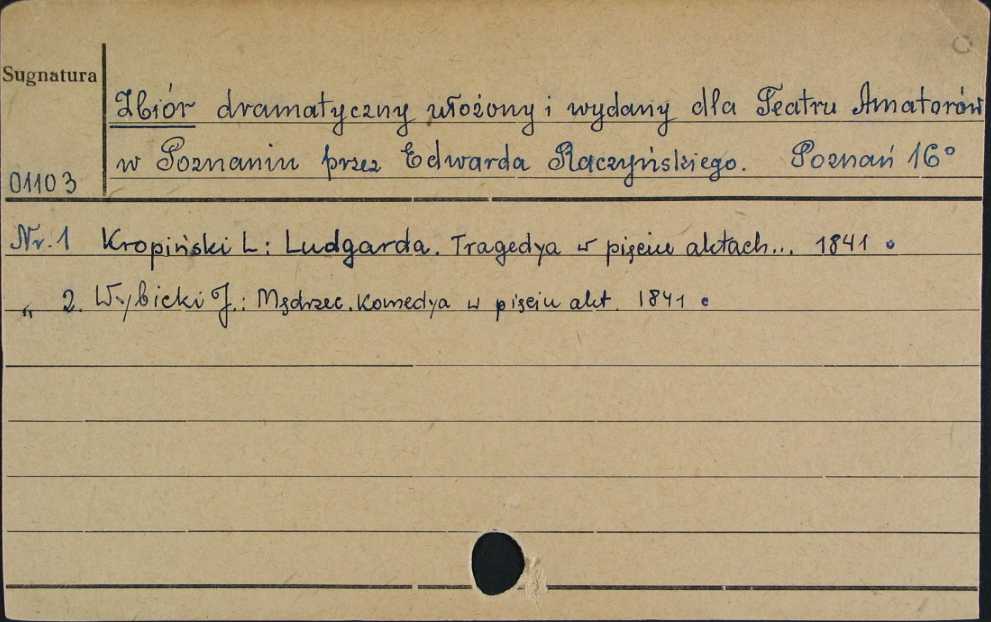 Sugnatura
Zbiór dramatyczny ułożony i wydany dla Teatru Amatorów
w Poznaniu przez Edwarda Raczyńskiego. Poznań 16°
01103
Nr. 1 Kropiński L: Ludgarda. Tragedya w pięciu aktach... 1841
„ 2. Wybicki J.: Mędrzec. Komedya w pięciu akt. 1841